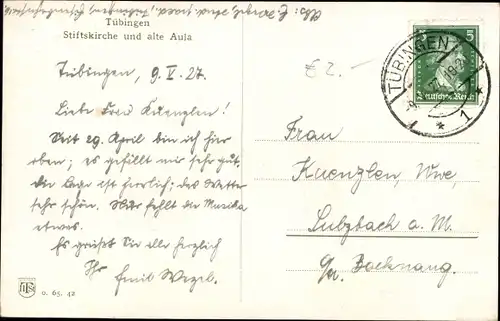 Tübingen
Stiftskirche und alte Aula
Tübingen, 9. V. 27.
Liebe Frau Kuenzlen!
Seit 29. April bin ich hier
oben; es gefällt mir sehr gut,
die Lage ist herrlich; das Wetter
sehr schön. Nur fehlt die Musika
etwas.
Es grüßt Sie alle herzlich
Ihr Emil Wezel.
o. 65. 12
£ 2.-
TÜBINGEN
1
5
Deutsches Reich
Frau
Kuenzlen, Wwe,
Sulzbach a. M.
Backnang.